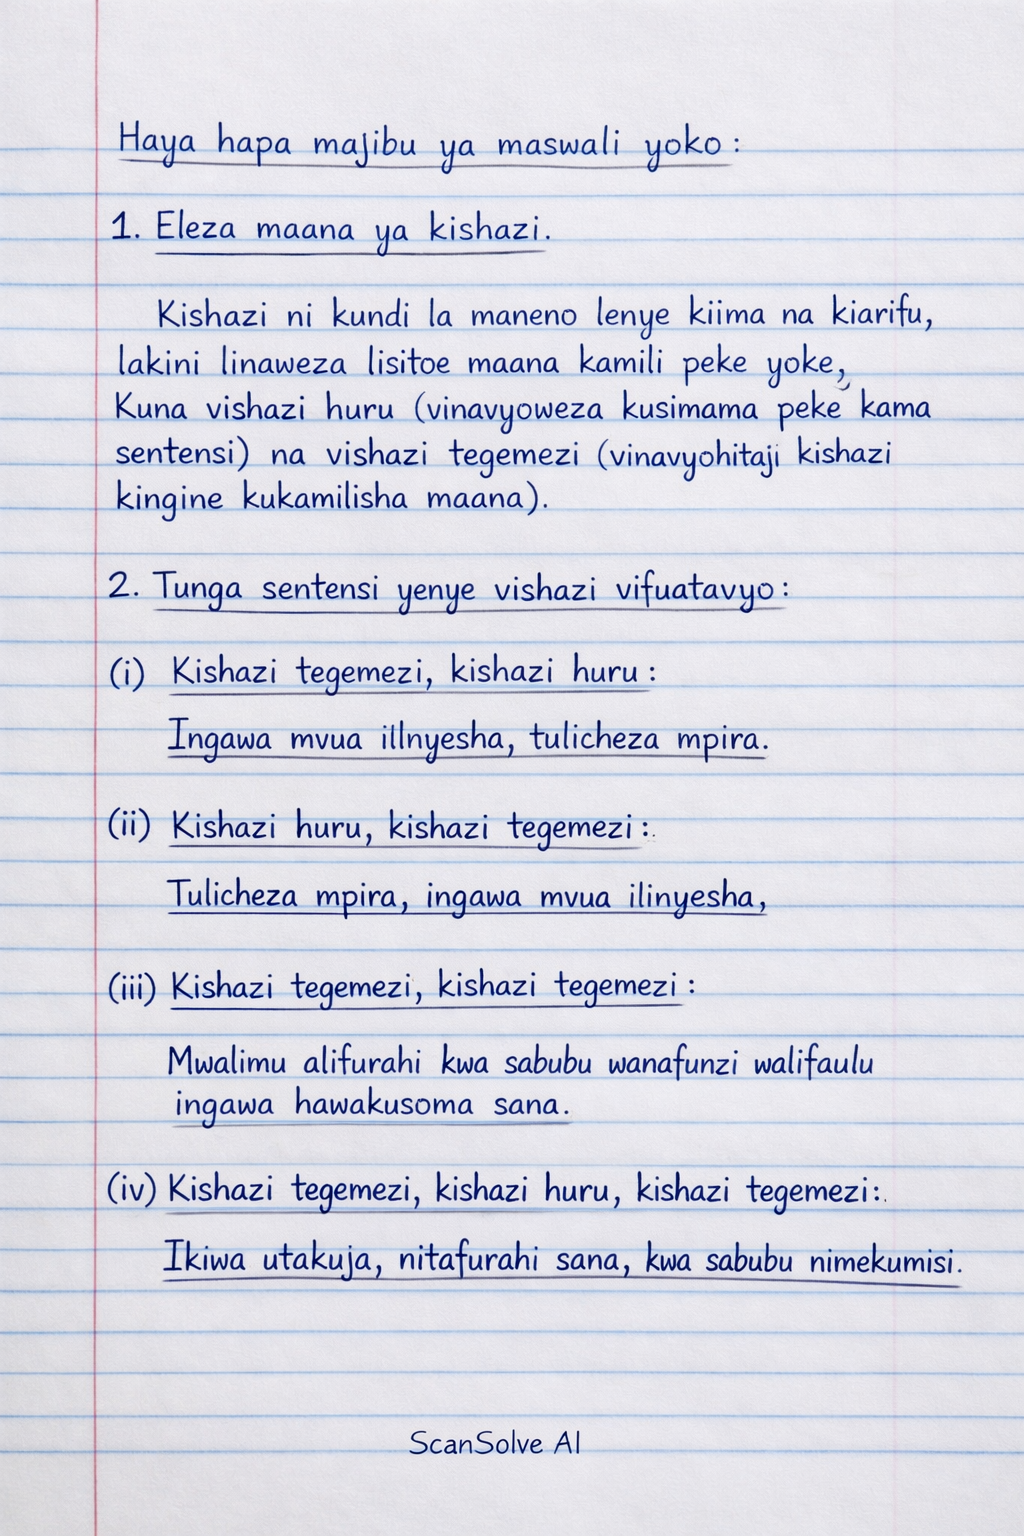 Haya hapa majibu ya maswali yoko:
1. Eleza maana ya kishazi.
Kishazi ni kundi la maneno lenye kiima na kiarifu,
lakini linaweza lisitoe maana kamili peke yoke,
Kuna vishazi huru (vinavyoweza kusimama peke kama
sentensi) na vishazi tegemezi (vinavyohitaji kishazi
kingine kukamilisha maana).
2. Tunga sentensi yenye vishazi vifuatavyo:
(i) Kishazi tegemezi, kishazi huru:
Ingawa mvua illnyesha, tulicheza mpira.
(ii) Kishazi huru, kishazi tegemezi:
Tulicheza mpira, ingawa mvua ilinyesha,
(iii) Kishazi tegemezi, kishazi tegemezi:
Mwalimu alifurahi kwa sabubu wanafunzi walifaulu
ingawa hawakusoma sana.
(iv) Kishazi tegemezi, kishazi huru, kishazi tegemezi:
Ikiwa utakuja, nitafurahi sana, kwa sabubu nimekumisi.
ScanSolve AI